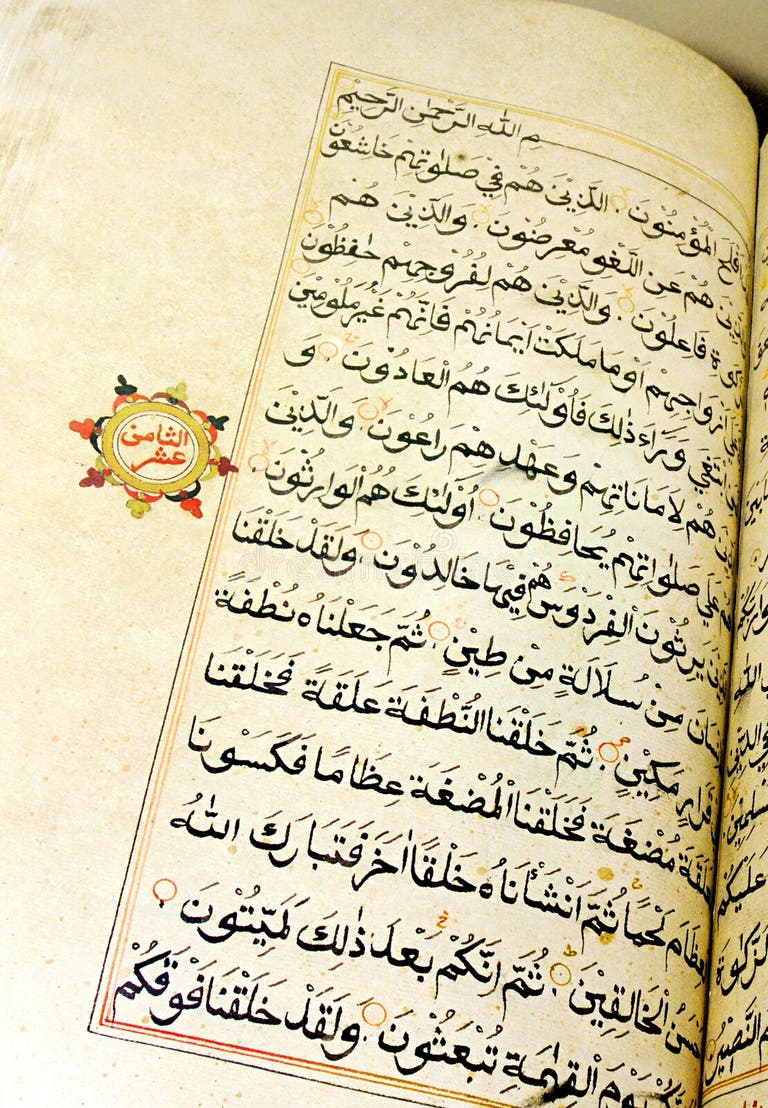 بِسْمِ اللهِ الرَّحْمٰنِ الرَّحِيْمِ
اَفْلَحَ الْمُؤْمِنُوْنَ الَّذِيْنَ هُمْ فِيْ صَلٰوتِهِمْ خَاشِعُوْنَ
هُمْ عَنِ اللَّغْوِ مُعْرِضُوْنَ وَالَّذِيْنَ هُمْ
فَاعِلُوْنَ وَالَّذِيْنَ هُمْ لِفُرُوْجِهِمْ حٰفِظُوْنَ
اَزْوَاجِهِمْ اَوْ مَا مَلَكَتْ اَيْمَانُهُمْ فَاِنَّهُمْ غَيْرُ مَلُوْمِيْنَ
ابْتَغٰى وَرَاۤءَ ذٰلِكَ فَاُوْلٰئِكَ هُمُ الْعَادُوْنَ وَ
هُمْ لِاَمَانَاتِهِمْ وَعَهْدِهِمْ رَاعُوْنَ وَالَّذِيْنَ
عَلٰى صَلَوَاتِهِمْ يُحَافِظُوْنَ اُوْلٰئِكَ هُمُ الْوَارِثُوْنَ
يَرِثُوْنَ الْفِرْدَوْسَ هُمْ فِيْهَا خَالِدُوْنَ وَلَقَدْ خَلَقْنَا
الْاِنْسَانَ مِنْ سُلَالَةٍ مِنْ طِيْنٍ ثُمَّ جَعَلْنَاهُ نُطْفَةً
قَرَارٍ مَكِيْنٍ ثُمَّ خَلَقْنَا النُّطْفَةَ عَلَقَةً فَخَلَقْنَا
الْعَلَقَةَ مُضْغَةً فَخَلَقْنَا الْمُضْغَةَ عِظَامًا فَكَسَوْنَا
الْعِظَامَ لَحْمًا ثُمَّ اَنْشَأْنَاهُ خَلْقًا اٰخَرَ فَتَبَارَكَ اللهُ
اَحْسَنُ الْخَالِقِيْنَ ثُمَّ اِنَّكُمْ بَعْدَ ذٰلِكَ لَمَيِّتُوْنَ
يَوْمَ الْقِيٰمَةِ تُبْعَثُوْنَ وَلَقَدْ خَلَقْنَا فَوْقَكُمْ
الثامن
عشر